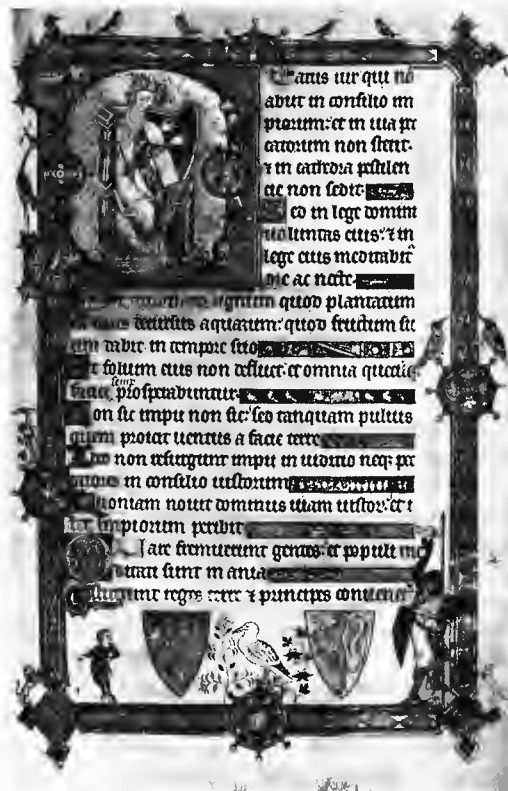 eatus uir qui nō
abiit in consilio im
piorum: et in uia pec
catorum non stetit:
⁊ in cathedra pestilen
cie non sedit
ed in lege domini
uoluntas eius: ⁊ in
lege eius meditabit̄
die ac nocte
lignum quod plantatum
decursus aquarum: quod fructum su
um dabit in tempore suo
Et folium eius non defluet: et omnia quecūq;
faciet semp̄ prosperabuntur
on sic impii non sic: sed tanquam puluis
quem proicit uentus a facie terre
deo non resurgunt impii in iudicio neq; pec
catores in consilio iustorum
uoniam nouit dominus uiam iustoꝝ: et i
ter impiorum peribit
uare fremuerunt gentes: et populi me
ditati sunt inania
reges terre ⁊ principes conuene